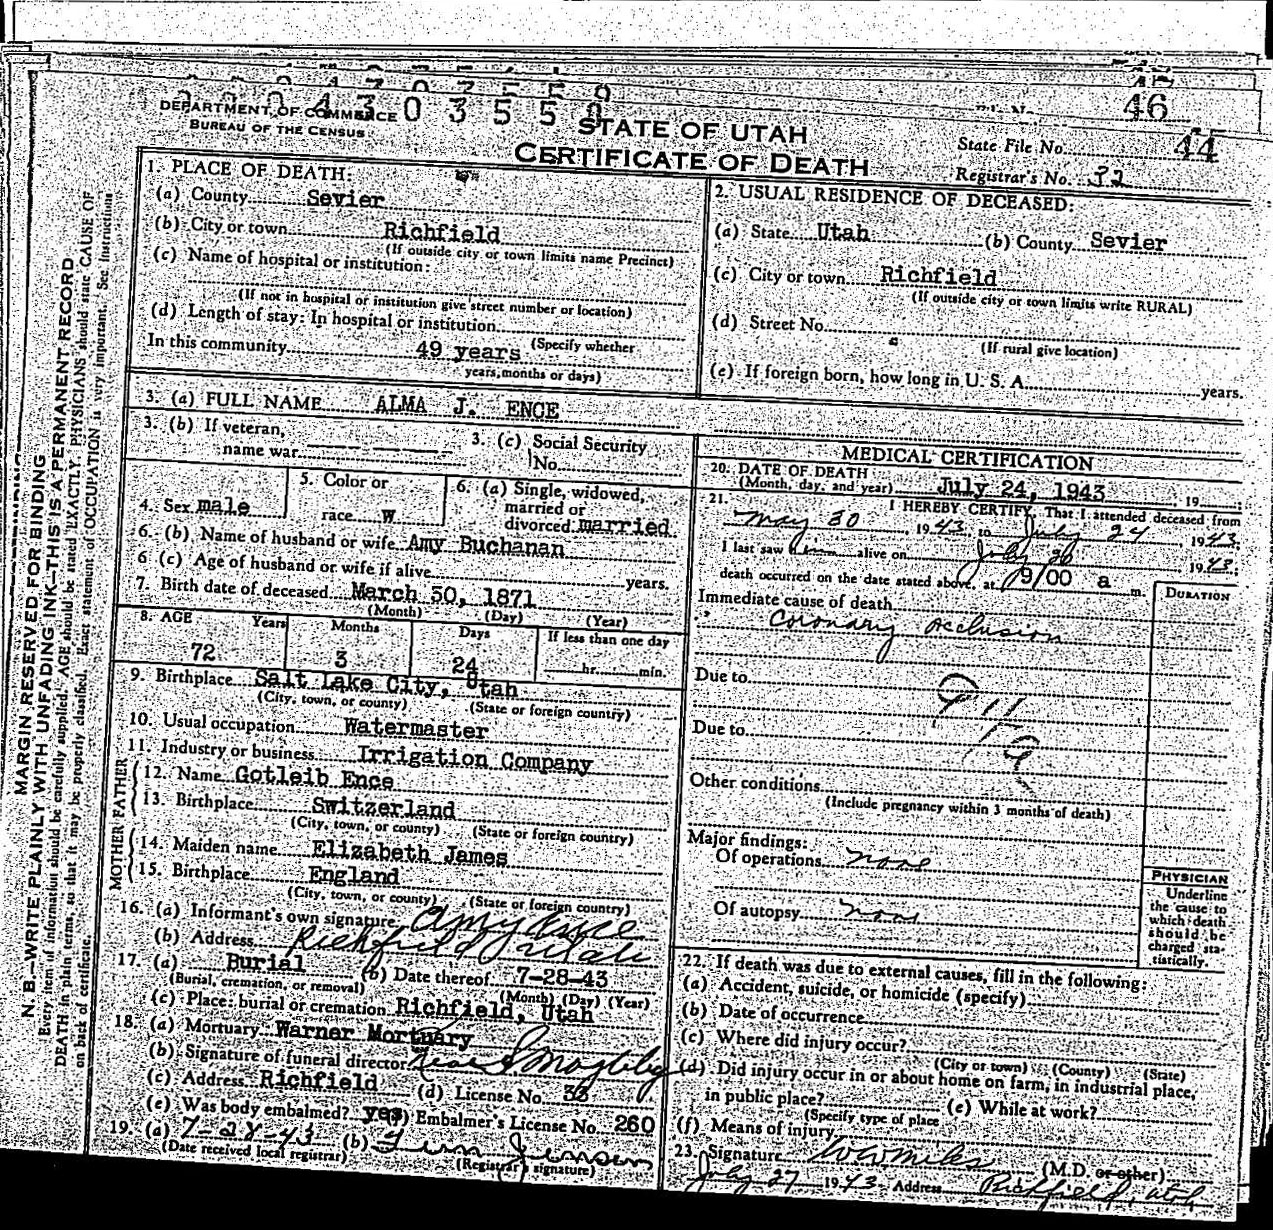 46
DEPARTMENT OF COMMERCE
BUREAU OF THE CENSUS
STATE OF UTAH
CERTIFICATE OF DEATH
State File No. 44
Registrar's No. 32
MARGIN RESERVED FOR BINDING
N. B.—WRITE PLAINLY WITH UNFADING INK—THIS IS A PERMANENT RECORD
Every item of information should be carefully supplied. AGE should be stated EXACTLY. PHYSICIANS should state CAUSE OF
DEATH in plain terms, so that it may be properly classified. Exact statement of OCCUPATION is very important. See instructions
on back of certificate.
1. PLACE OF DEATH:
(a) County Sevier
(b) City or town Richfield
(If outside city or town limits name Precinct)
(c) Name of hospital or institution:
(If not in hospital or institution give street number or location)
(d) Length of stay: In hospital or institution
(Specify whether
In this community 49 years
years, months or days)
2. USUAL RESIDENCE OF DECEASED:
(a) State Utah (b) County Sevier
(c) City or town Richfield
(If outside city or town limits write RURAL)
(d) Street No.
(If rural give location)
(e) If foreign born, how long in U. S. A. years.
3. (a) FULL NAME ALMA J. ENCE
3. (b) If veteran,
name war
3. (c) Social Security
No.
4. Sex male
5. Color or
race W
6. (a) Single, widowed,
married or
divorced married
6. (b) Name of husband or wife Amy Buchanan
6 (c) Age of husband or wife if alive years.
7. Birth date of deceased March 30, 1871
(Month) (Day) (Year)
8. AGE Years Months Days If less than one day
72 3 24 hr. min.
9. Birthplace Salt Lake City, Utah
(City, town, or county) (State or foreign country)
10. Usual occupation Watermaster
11. Industry or business Irrigation Company
FATHER
12. Name Gotleib Ence
13. Birthplace Switzerland
(City, town, or county) (State or foreign country)
MOTHER
14. Maiden name Elizabeth James
15. Birthplace England
(City, town, or county) (State or foreign country)
16. (a) Informant's own signature Amy Ence
(b) Address Richfield Utah
17. (a) Burial (b) Date thereof 7-28-43
(Burial, cremation, or removal) (Month) (Day) (Year)
(c) Place: burial or cremation Richfield, Utah
18. (a) Mortuary Warner Mortuary
(b) Signature of funeral director
(c) Address Richfield (d) License No. 33
(e) Was body embalmed? yes (f) Embalmer's License No. 260
19. (a) 7-28-43 (b) Jensen
(Date received local registrar) (Registrar's signature)
MEDICAL CERTIFICATION
20. DATE OF DEATH
(Month, day, and year) July 24, 1943, 19
21. I HEREBY CERTIFY, That I attended deceased from
May 30, 1943, to July 24 1943.
I last saw him alive on July 20, 1943;
death occurred on the date stated above, at 9/00 a m.
DURATION
Immediate cause of death
Coronary occlusion
Due to
Due to
Other conditions
(Include pregnancy within 3 months of death)
Major findings:
Of operations none
Of autopsy none
PHYSICIAN
Underline
the cause to
which death
should be
charged sta-
tistically.
22. If death was due to external causes, fill in the following:
(a) Accident, suicide, or homicide (specify)
(b) Date of occurrence
(c) Where did injury occur?
(City or town) (County) (State)
(d) Did injury occur in or about home on farm, in industrial place,
in public place? (e) While at work?
(Specify type of place
(f) Means of injury
23. Signature (M.D. or other)
July 27 1943 Address Richfield, Utah